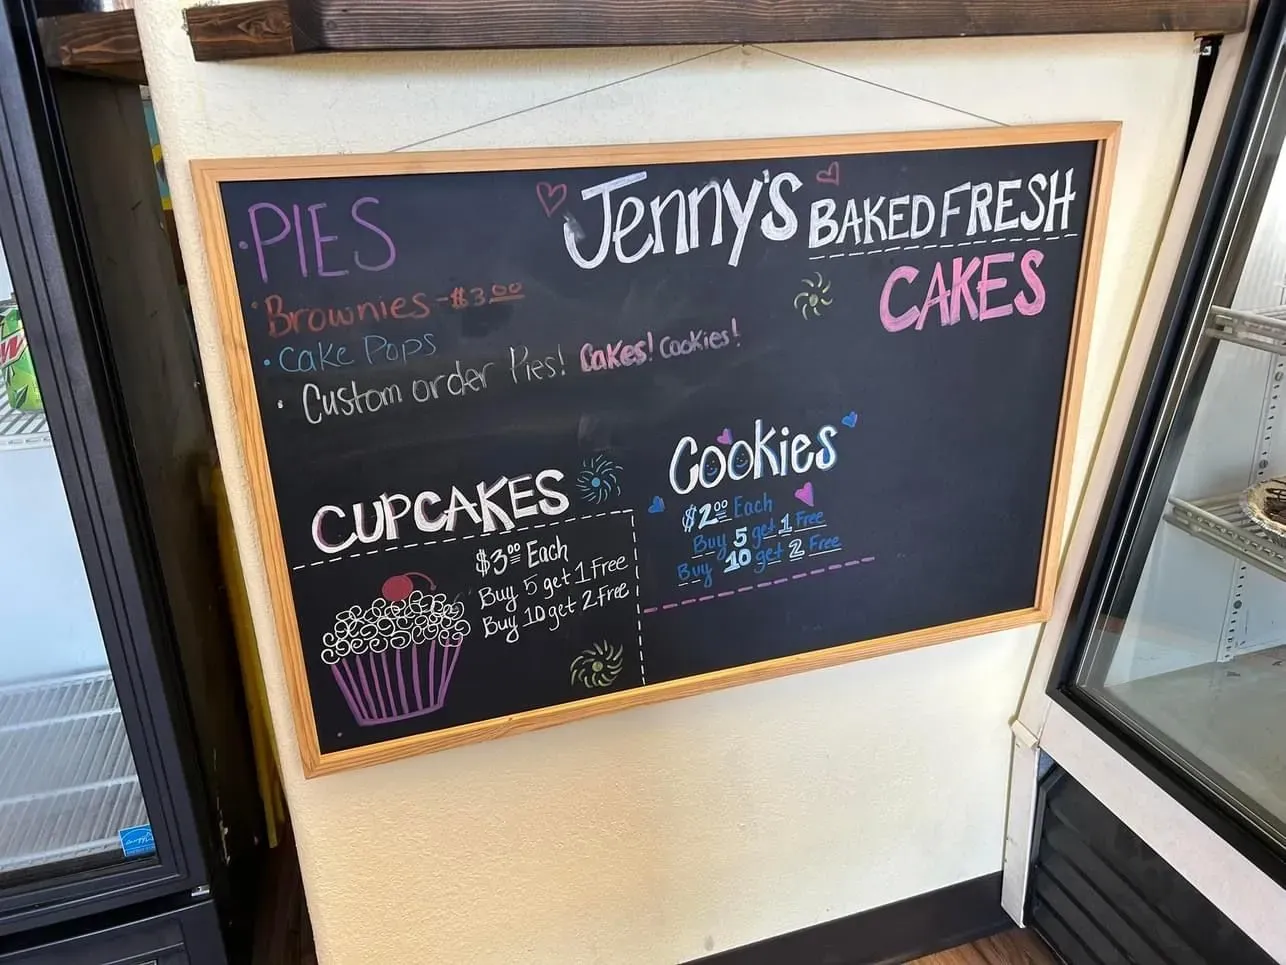 Jenny's BAKED FRESH
CAKES
• PIES
• Brownies - $3.00
• Cake Pops
• Custom order Pies! Cakes! Cookies!
CUPCAKES
$3.00 Each
Buy 5 get 1 Free
Buy 10 get 2 Free
Cookies
$2.00 Each
Buy 5 get 1 Free
Buy 10 get 2 Free